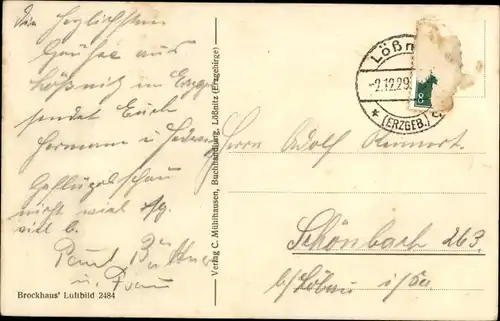 Die herzlichsten
Grüße aus
Lößnitz im Erzg.
sendet Euch
Hermann u.
Geflügelschau
nicht viel
viel
Paul
u. Frau
Brockhaus' Luftbild 2484
Verlag C. Mühlhausen, Buchhandlung, Lößnitz (Erzgebirge)
Lößn
-2.12.29.
* (ERZGEB.)
8
Herrn Adolf
Schönbach 263.
b/Löbau i/Sa